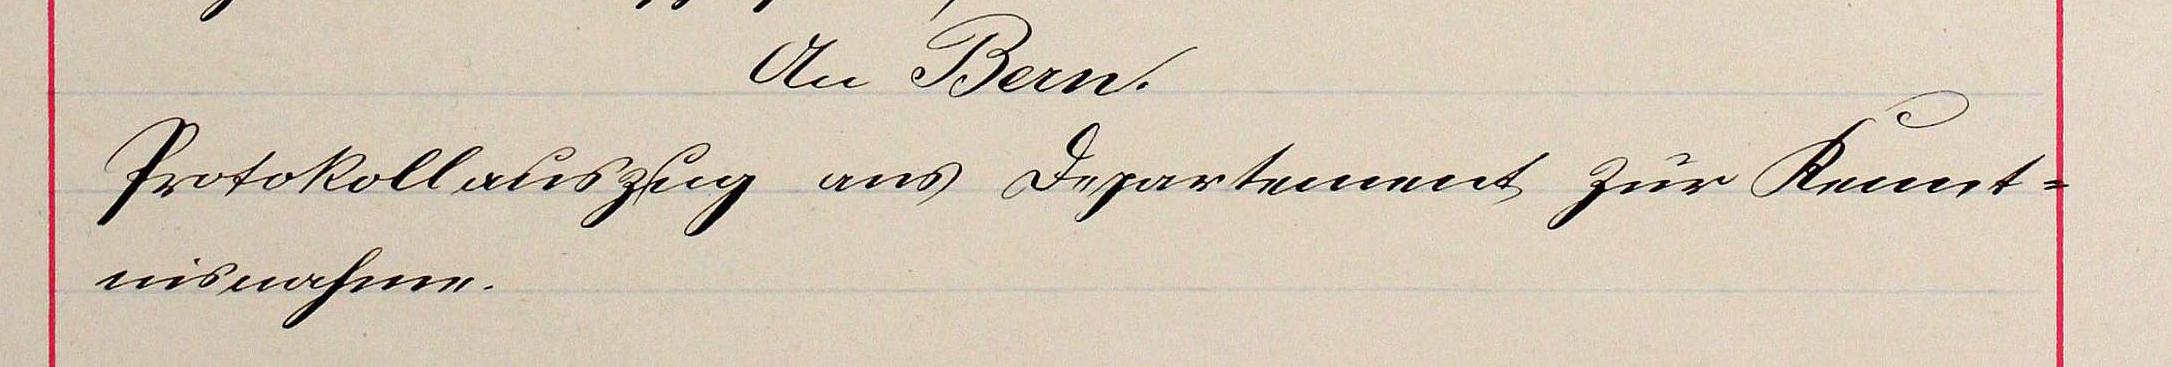 An Bern.
Protokollauszug ans Departement zur Kennt=
nisnahme.